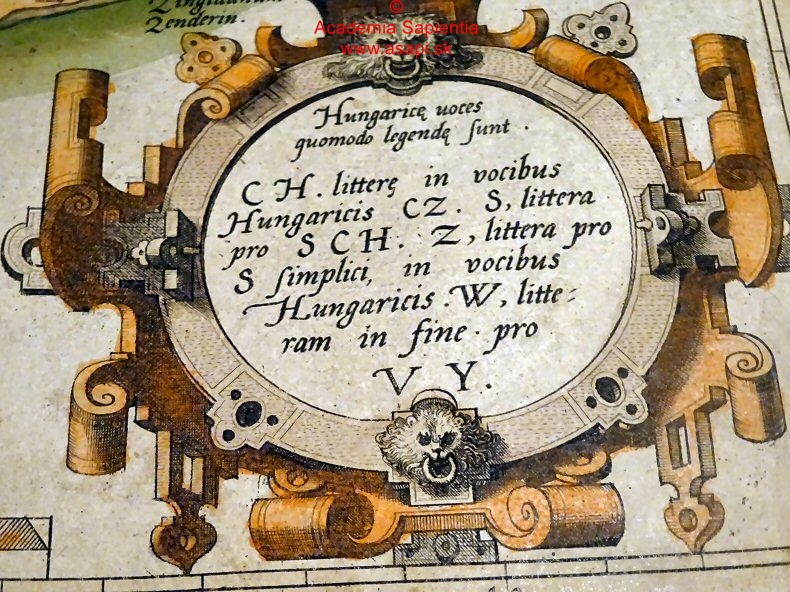 Zenderin.
©
Academia Sapientia
www.asapi.sk
Hungaricę uoces
quomodo legendę ſunt.
C H. litterę in vocibus
Hungaricis CZ. S, littera
pro SCH. Z, littera pro
S ſimplici, in vocibus
Hungaricis. W, litte⸗
ram in fine pro
V Y.